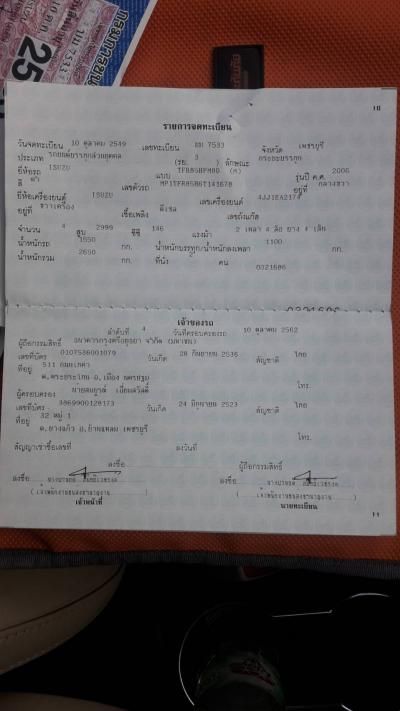 กรมการขนส
25
7533
10
รายการจดทะเบียน
วันจดทะเบียน 10 ตุลาคม 2549 เลขทะเบียน 7533 จังหวัด เพชรบุรี
ประเภท รถยนต์บรรทุกส่วนบุคคล (รย. 3 ) ลักษณะ กระบะบรรทุก
ยี่ห้อรถ ISUZU แบบ รุ่นปี ค.ศ. 2006
สี เลขตัวรถ MP1TFR85B6T143678 อยู่ที่ กลางขวา
ยี่ห้อเครื่องยนต์ ISUZU เลขเครื่องยนต์ 4JJ1EA2174
อยู่ที่ ขวาเครื่อง เชื้อเพลิง ดีเซล เลขถังแก๊ส
จำนวน 4 สูบ 2999 ซีซี 146 แรงม้า 2 เพลา 4 ล้อ ยาง 4 เส้น
น้ำหนักรถ 1550 กก. น้ำหนักบรรทุก/น้ำหนักลงเพลา 1100 กก.
น้ำหนักรวม 2650 กก. ที่นั่ง 2 คน
0321686
เจ้าของรถ
ลำดับที่ 4 วันที่ครอบครองรถ 10 ตุลาคม 2562
ผู้ถือกรรมสิทธิ์ ธนาคารกรุงศรีอยุธยา จำกัด (มหาชน)
เลขที่บัตร 0107536001079 วันเกิด 28 กันยายน 2536 สัญชาติ ไทย
ที่อยู่ 511
ต.พระประโทน อ.เมือง นครปฐม โทร.
ผู้ครอบครอง
เลขที่บัตร 3869900128173 วันเกิด 24 มิถุนายน 2523 สัญชาติ ไทย
ที่อยู่ 32 หมู่ 1
อ.บ้านแหลม เพชรบุรี โทร.
สัญญาเช่าซื้อเลขที่ ลงวันที่
ลงชื่อ ผู้ถือกรรมสิทธิ์
ลงชื่อ ลงชื่อ
(เจ้าพนักงานขนส่งชำนาญงาน) (เจ้าพนักงานขนส่งชำนาญงาน)
เจ้าหน้าที่ นายทะเบียน
11